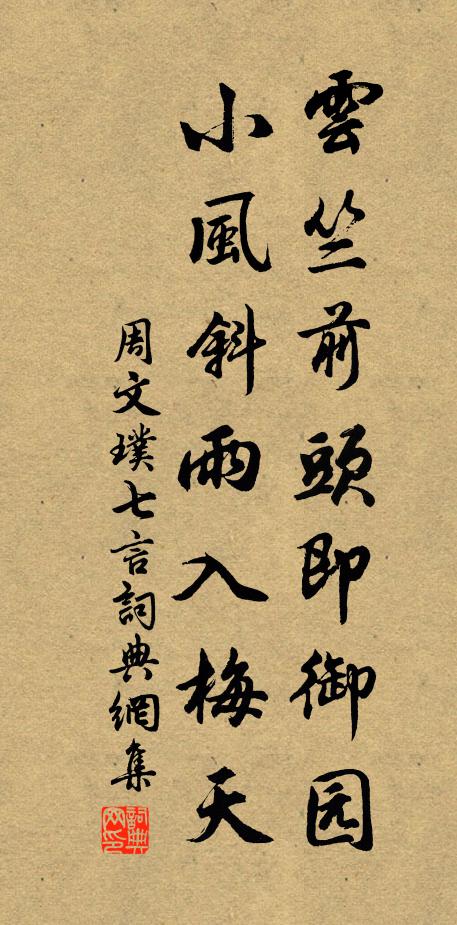 雲竺前頭即御园
小風斜雨入梅天
周文璞七言詞典網集
詞典网印